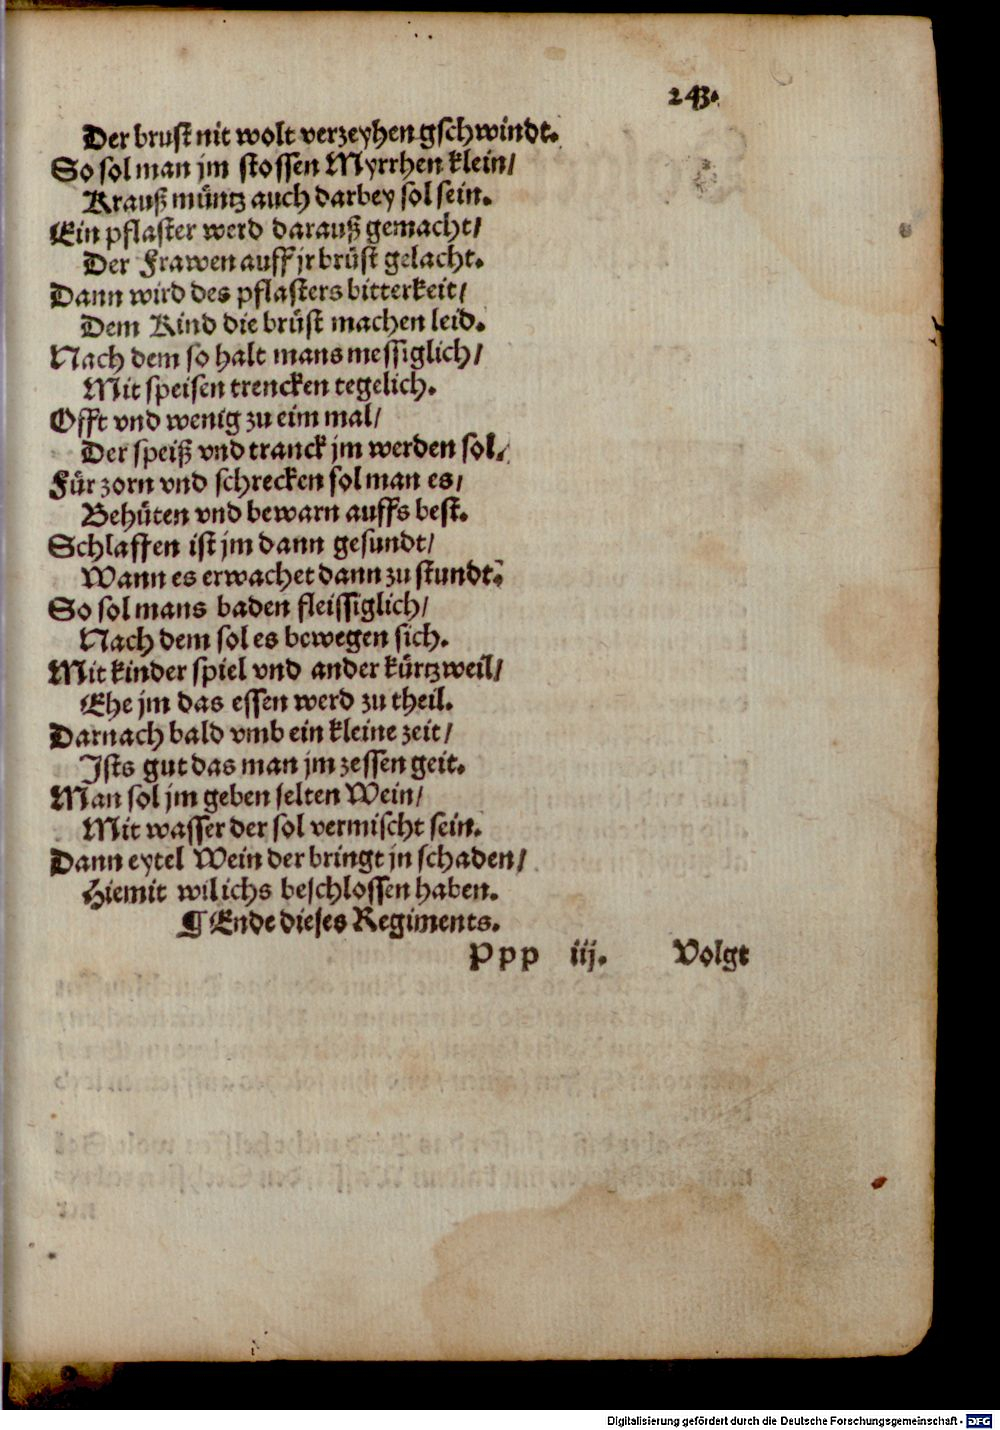 243.
Der brust nit wolt verzeyhen gschwindt.
So sol man jm stossen Myrrhen klein/
Krauß müntz auch darbey sol sein.
Ein pflaster werd darauß gemacht/
Der Frawen auff jr brüst gelacht.
Dann wird des pflasters bitterkeit/
Dem Kind die brüst machen leid.
Nach dem so halt mans messiglich/
Mit speisen trencken tegelich.
Offt vnd wenig zu eim mal/
Der speiß vnd tranck jm werden sol.
Für zorn vnd schrecken sol man es/
Behüten vnd bewarn auffs best.
Schlaffen ist jm dann gesundt/
Wann es erwachet dann zu stundt.
So sol mans baden fleissiglich/
Nach dem sol es bewegen sich.
Mit kinder spiel vnd ander kürtzweil/
Ehe jm das essen werd zu theil.
Darnach bald vmb ein kleine zeit/
Ists gut das man jm zessen geit.
Man sol jm geben selten Wein/
Mit wasser der sol vermischt sein.
Dann eytel Wein der bringt jn schaden/
Hiemit wil ichs beschlossen haben.
¶ Ende dieses Regiments.
Ppp iij. Volgt
Digitalisierung gefördert durch die Deutsche Forschungsgemeinschaft - DFG